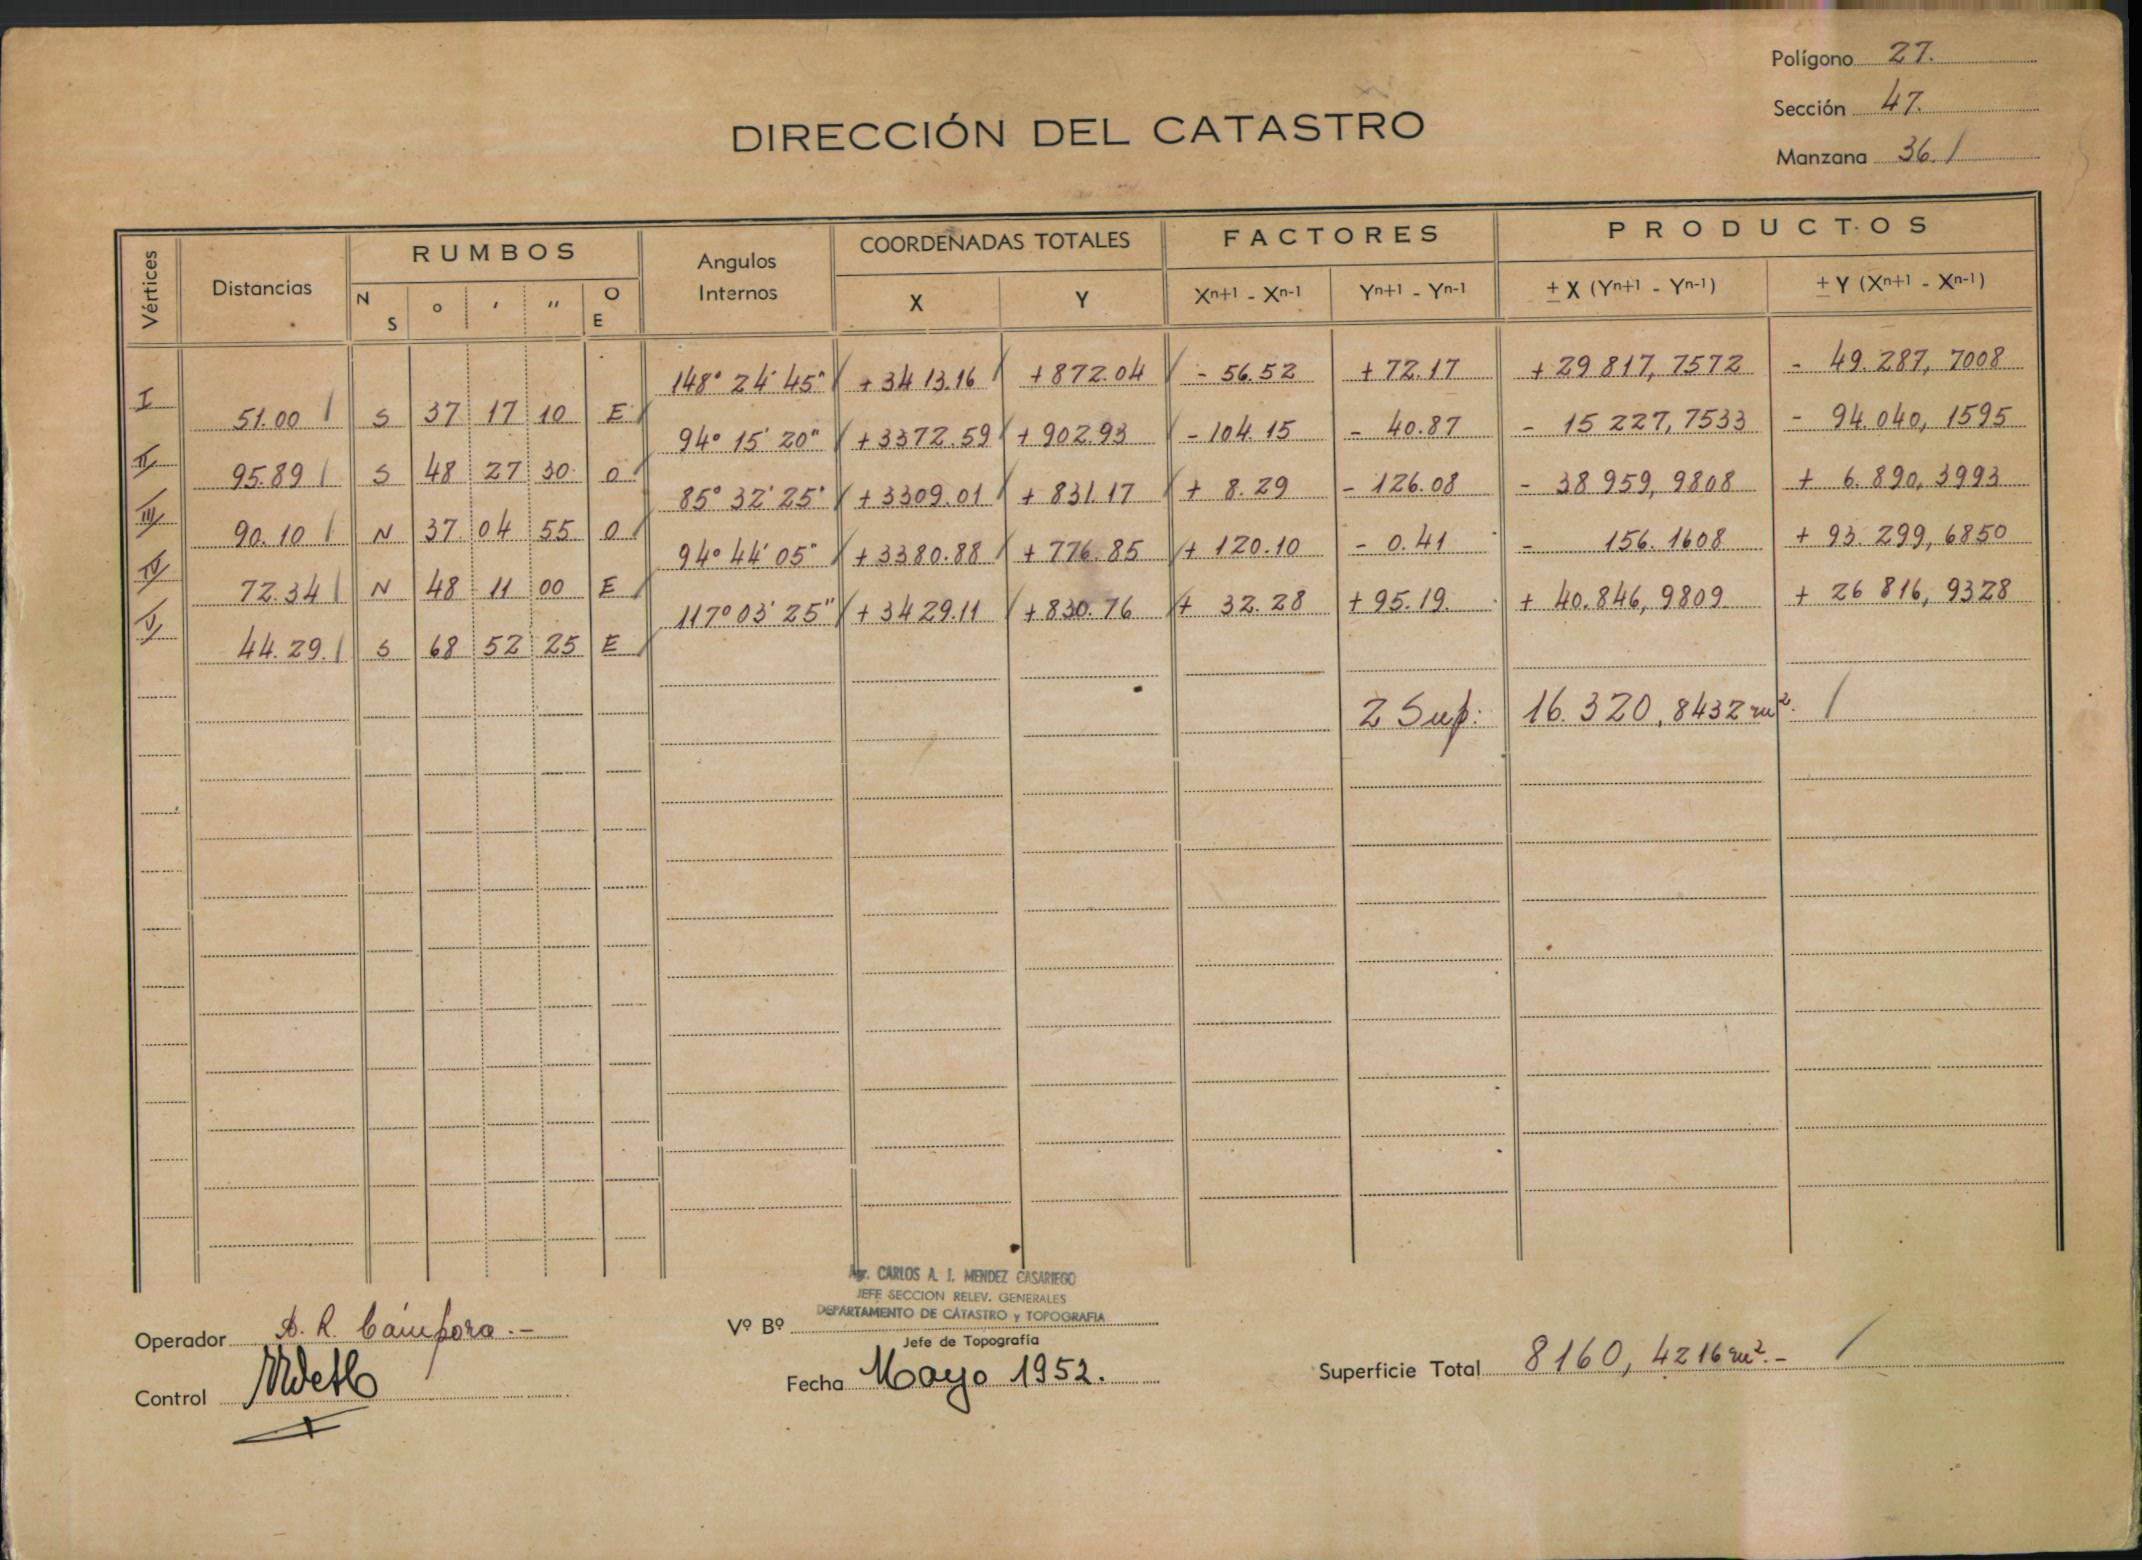 Polígono 27.
Sección 47.
Manzana 36. /
DIRECCIÓN DEL CATASTRO
Vértices | Distancias | RUMBOS | Angulos Internos | COORDENADAS TOTALES | FACTORES | PRODUCTOS
N S | o | ′ | ″ | O E | X | Y | Xn+1 - Xn-1 | Yn+1 - Yn-1 | ± X (Yn+1 - Yn-1) | ± Y (Xn+1 - Xn-1)
I | 148° 24' 45" | +3413.16 | +872.04 | - 56.52 | +72.17 | +29 817, 7572 | - 49.287, 7008
51.00 | S | 37 | 17 | 10 | E
II | 94° 15' 20" | +3372.59 | +902.93 | -104.15 | - 40.87 | - 15 227, 7533 | - 94.040, 1595
95.89 | S | 48 | 27 | 30 | O
III | 85° 32' 25" | +3309.01 | + 831.17 | + 8.29 | - 126.08 | - 38 959, 9808 | + 6.890, 3993
90.10 | N | 37 | 04 | 55 | O
IV | 94° 44' 05" | +3380.88 | + 776.85 | + 120.10 | - 0.41 | - 156.1608 | + 93.299, 6850
72.34 | N | 48 | 11 | 00 | E
V | 117° 03' 25" | +3429.11 | +830.76 | + 32.28 | +95.19. | + 40.846, 9809 | + 26 816, 9328
44.29. | S | 68 | 52 | 25 | E
2 Sup: 16.320, 8432 m². /
Agr. CARLOS A. J. MENDEZ CASARIEGO
JEFE SECCION RELEV. GENERALES
DEPARTAMENTO DE CATASTRO y TOPOGRAFIA
Operador A. R. Cámpora.-
Vº Bº
Jefe de Topografía
Superficie Total 8160, 4216 m².- /
Control
Fecha Mayo 1952.